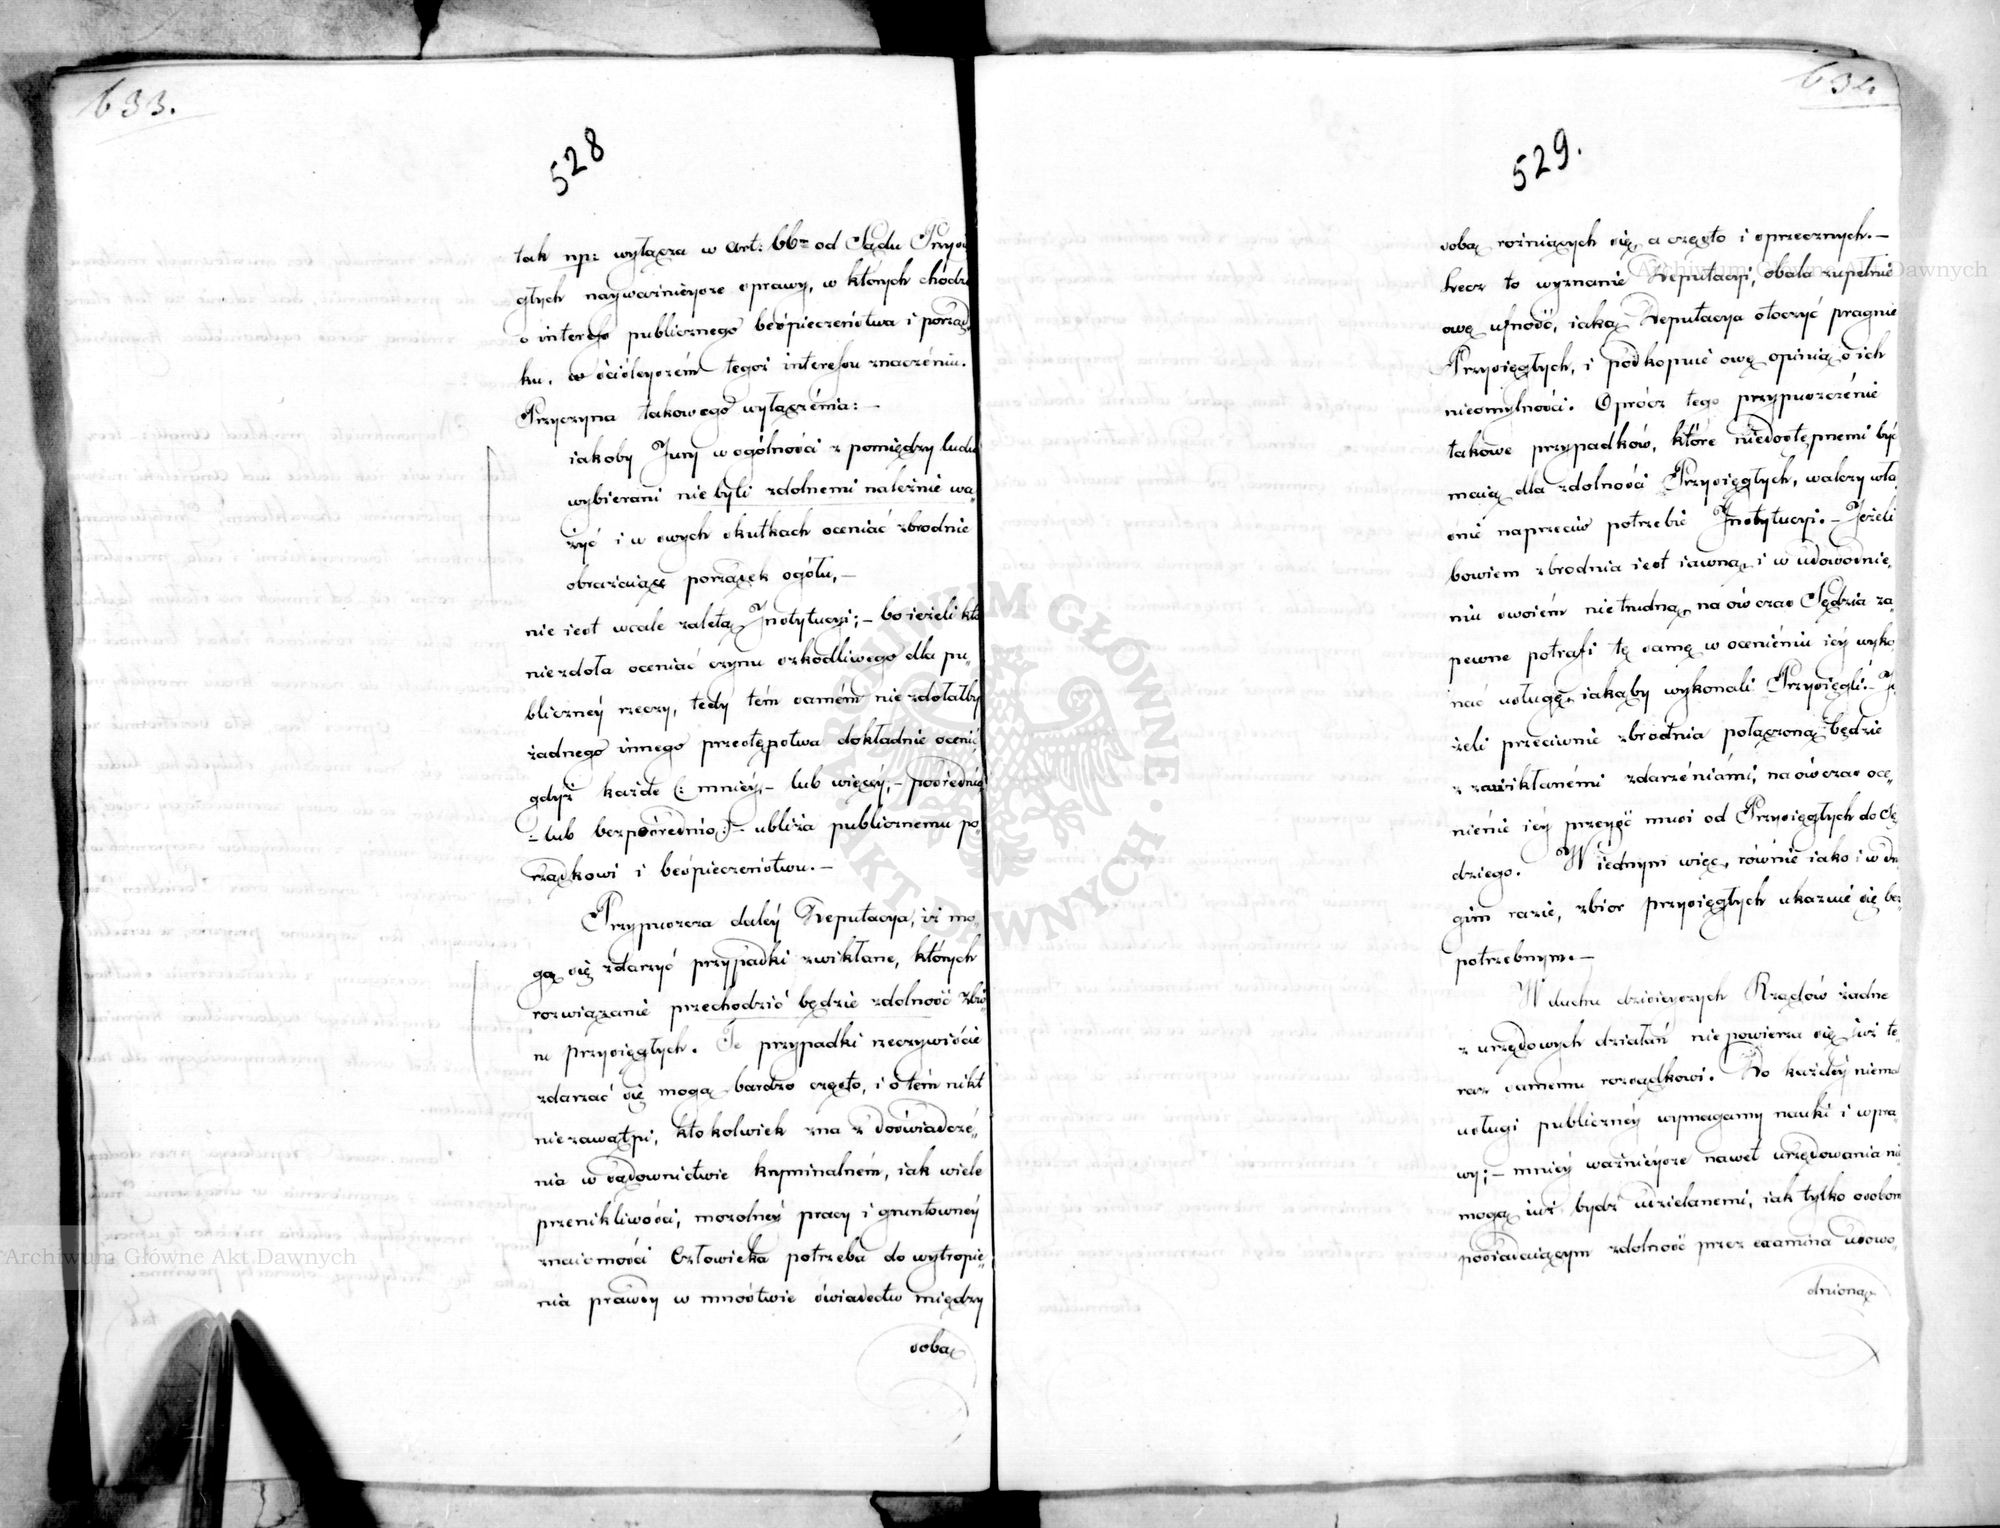 633.
528
tak np: wyłącza w Art: 66m od Sądu Przysię
głych nayważnieysze sprawy, w których chodzi
o interess publicznego bespieczeństwa i porząd„
ku, w ściśleyszém tegoż interesu znaczéniu.
Przyczyna takowego wyłączénia: —
iakoby Jury w ogólności z pomiędzy ludu
wybierani nie byli zdolnemi należnie wa„
żyć i w swych skutkach oceniać zbrodnie
obrażaiące porządek ogółu, —
nie iest wcale zaletą Instytucyi; — bo ieżeli kto
nie zdoła oceniać czynu szkodliwego dla pu„
bliczney rzeczy, tedy tém samém nie zdołałby
żadnego innego przestępstwa dokładnie ocenić
gdyż każde (: mniéy, — lub więcéy; — pośrednio
— lub bezpośrednio :) — ubliża publicznemu po„
rządkowi i bespieczeństwu. —
Przypuszcza daléy Deputacya, iż mo„
gą się zdarzyć przypadki zwikłane, których
rozwiązanie przechodzić będzie zdolność Zbio„
ru przysięgłych. Te przypadki rzeczywiście
zdarzać się mogą bardzo często, i o tém nikt
nie zawątpi, ktokolwiek zna z doświadczé„
nia w sądownictwie kryminalném, iak wiele
przenikliwości, mozolnéy pracy i gruntownéy
znaiomości Człowieka potrzeba do wytropie„
nia prawdy w mnóstwie świadectw między
sobą
634.
529.
sobą rożniących się, a często i sprzecznych. —
Lecz to wyznanie Deputacyi, obala zupełnie
owę ufność, iaką Deputacya otoczyć pragnie
Przysięgłych, i podkopuie owę opinią o ich
nieomylności. Oprócz tego przypuszczénie
takowe przypadków, które niedostępnemi być
maią dla zdolności Przysięgłych, walczy wła„
śnie naprzeciw potrzebie Instytucyi. — Jeżeli
bowiem zbrodnia iest iawną, i w udowodnie„
niu swoiém nie trudną, na ów czas Sędzia za„
pewne potrafi tę samę w ocenieniu iéy wyko„
nać usługę, iakąby wykonali Przysięgli. — Je„
żeli przeciwnie zbrodnia połączoną będzie
z zawikłanémi zdarzéniami, na ów czas oce„
niénie iéy przeyść musi od Przysięgłych do Sę„
dziego. W iednym więc, równie iako i w dru
gim razie, zbior przysięgłych ukazuie się bez„
potrzebnym. —
W duchu dzisieyszych Rządów żadne
z urzędowych działań nie powierza się iuż te„
raz samému rozsądkowi. Do każdéy niemal
usługi publicznéy wymagamy nauki i wpra„
wy; — mniéy ważnieysze nawet urzędowania nie
mogą iuż bydź udzielanemi, iak tylko osobom
posiadaiącym zdolność przez examina udowo„
dnioną
Archiwum Główne Akt Dawnych
Archiwum Główne Akt Dawnych
ARCHIWUM GŁÓWNE AKT DAWNYCH